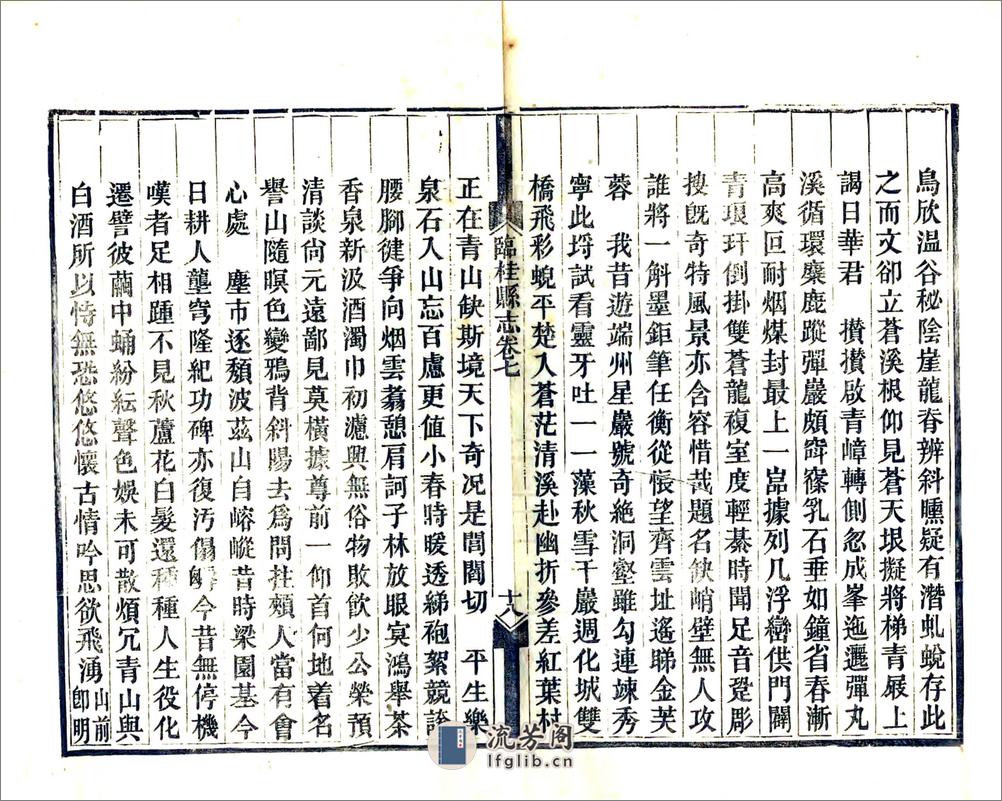 鳥欣温谷秘陰崖龍脊辨斜曛疑有潛虬蛻存此
之而文卻立蒼溪根仰見蒼天垠擬將梯青屐上
謁日華君　攢攢啟青嶂轉側忽成峯迤邐彈丸
溪循環麋鹿蹤彈巖頗窅窱乳石垂如鐘省春漸
高爽叵耐烟煤封最上一嵓據列几浮巒供門闢
青琅玕倒掛雙蒼龍複室度輕綦時聞足音跫彫
搜旣奇特風景亦含容惜哉題名缺峭壁無人攻
誰將一斛墨鉅筆任衡從悵望齊雲址遙睇金芙
蓉　我昔遊端州星巖號奇絶洞壑雖勾連竦秀
寧此埒試看靈牙吐一一藻秋雪千巖週化城雙
橋飛彩蜺平楚入蒼茫清溪赴幽折參差紅葉村
臨桂縣志卷七
十八
正在青山缺斯境天下奇况是閭閻切　平生樂
泉石入山忘百慮更值小春時暖透綈袍絮競誇
腰腳健爭向烟雲翥憩肩訶子林放眼冥鴻舉茶
香泉新汲酒濁巾初漉興無俗物敗飲少公榮預
清談尙元遠鄙見莫橫據尊前一仰首何地着名
譽山隨暝色變鴉背斜陽去爲問拄頰人當有會
心處　塵市逐頽波茲山自嵱嵷昔時梁園基今
日耕人壟穹隆紀功碑亦復汚傷 今昔無停機
嘆者足相踵不見秋蘆花白髮還種種人生役化
遷譬彼繭中蛹紛紜聲色娛未可散煩冗青山與
白酒所以恃無恐悠悠懷古情吟思欲飛湧山前卽明
流芳阁
lfglib.cn